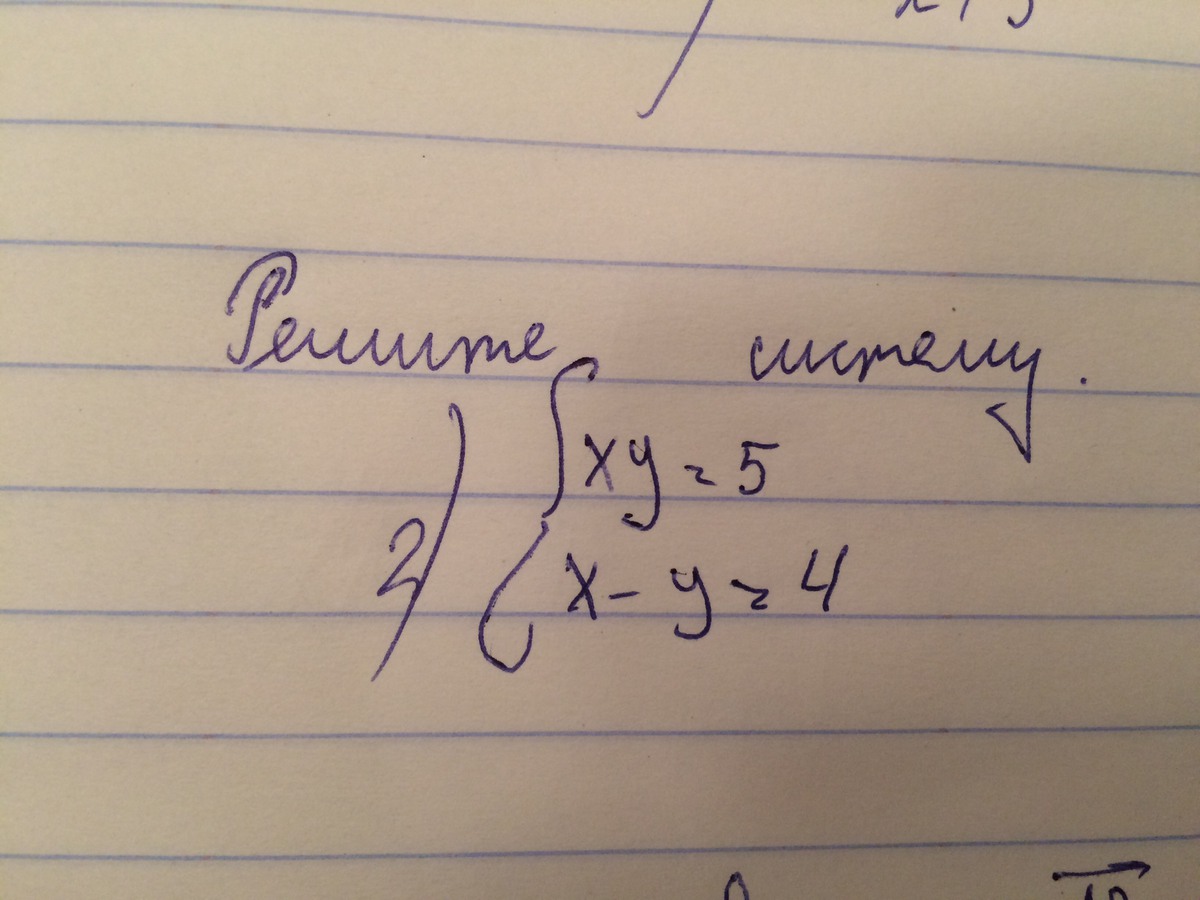 Решите систему.
2) { xy = 5
x - y = 4